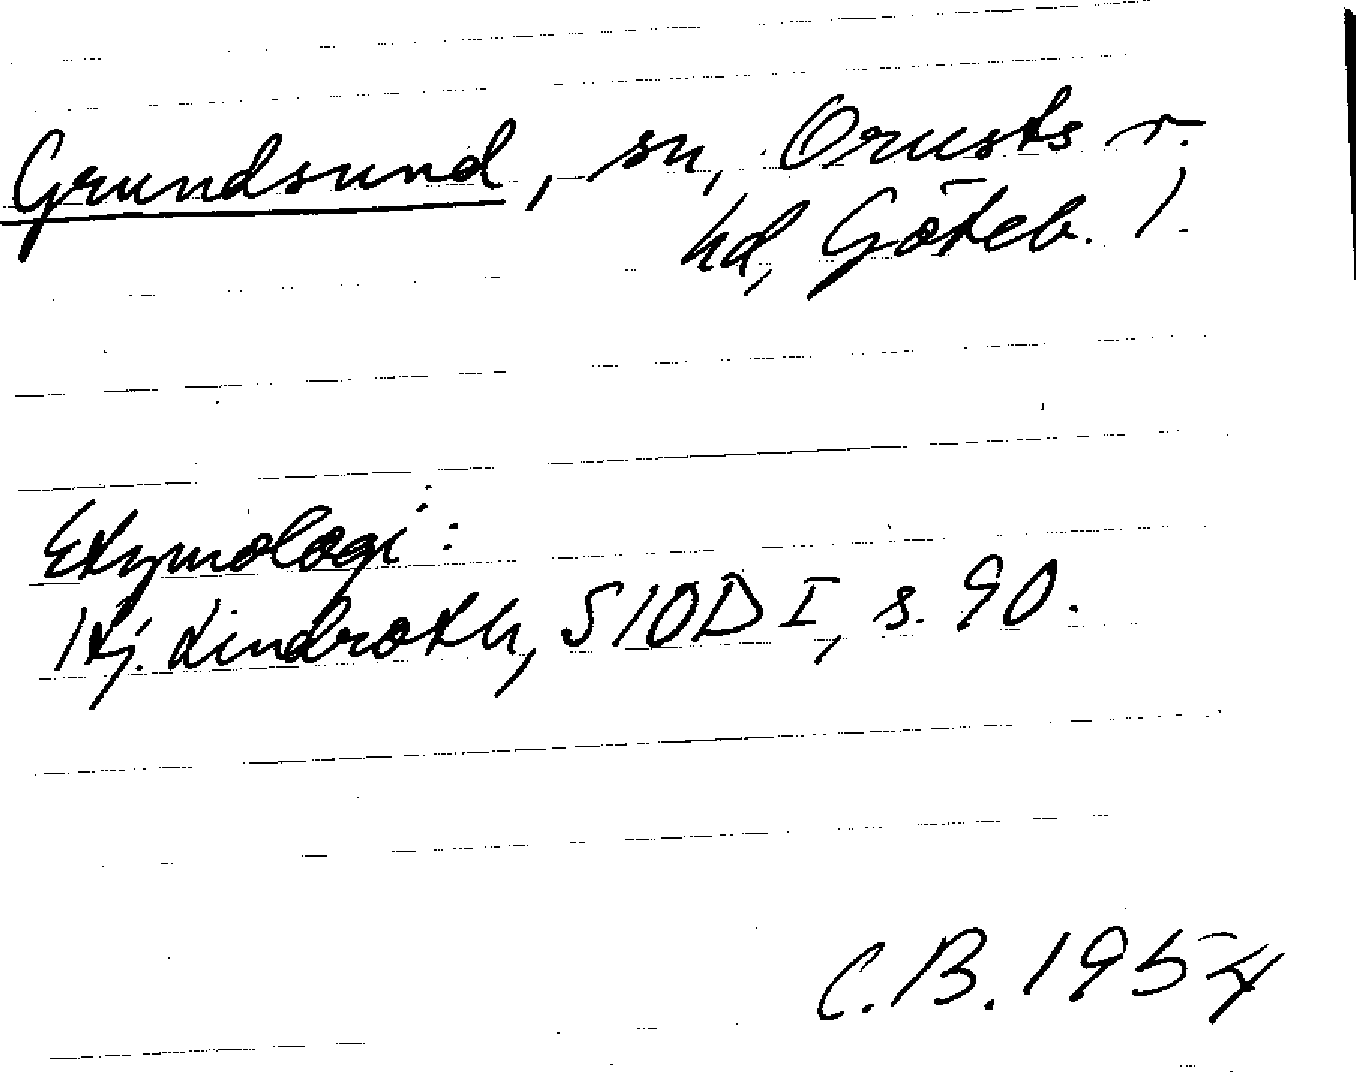 Grundsund, sn, Orusts v.
hd, Göteb. l.
Etymologi:
Hj. Lindroth, SIOD I, s. 90.
C.B. 1954